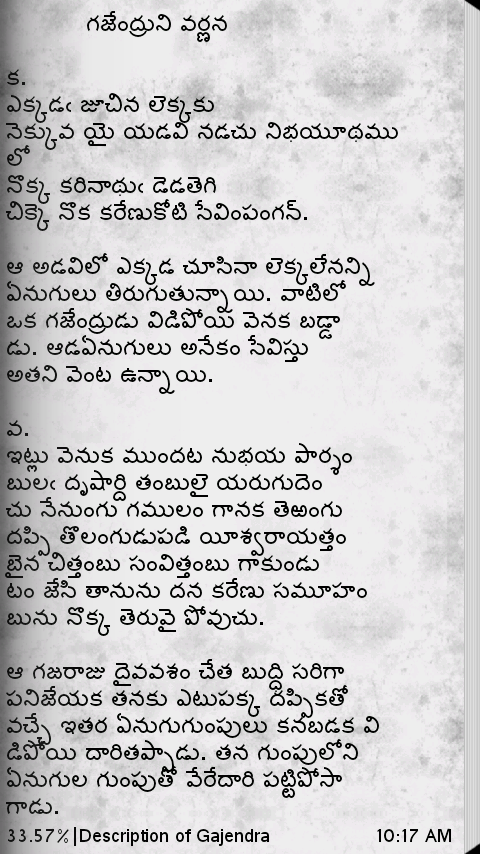 గజేంద్రుని వర్ణన
క.
ఎక్కడఁ జూచిన లెక్కకు
నెక్కువ యై యడవి నడచు నిభయూథము
లో
నొక్క కరినాథుఁ డెడతెగి
చిక్కె నొక కరేణుకోటి సేవింపంగన్.
ఆ అడవిలో ఎక్కడ చూసినా లెక్కలేనన్ని
ఏనుగులు తిరుగుతున్నాయి. వాటిలో
ఒక గజేంద్రుడు విడిపోయి వెనక బడ్డా
డు. ఆడఏనుగులు అనేకం సేవిస్తు
అతని వెంట ఉన్నాయి.
వ.
ఇట్లు వెనుక ముందట నుభయ పార్శ్వం
బులఁ దృషార్ది తంబులై యరుగుదెం
చు నేనుంగు గములం గానక తెఱంగు
దప్పి తొలంగుడుపడి యీశ్వరాయత్తం
బైన చిత్తంబు సంవిత్తంబు గాకుండు
టం జేసి తానును దన కరేణు సమూహం
బును నొక్క తెరువై పోవుచు.
ఆ గజరాజు దైవవశం చేత బుద్ధి సరిగా
పనిజేయక తనకు ఎటుపక్క దప్పికతో
వచ్చే ఇతర ఏనుగుగుంపులు కనబడక వి
డిపోయి దారితప్పాడు. తన గుంపులోని
ఏనుగుల గుంపుతో వేరేదారి పట్టిపోసా
గాడు.
33.57%|Description of Gajendra 10:17 AM